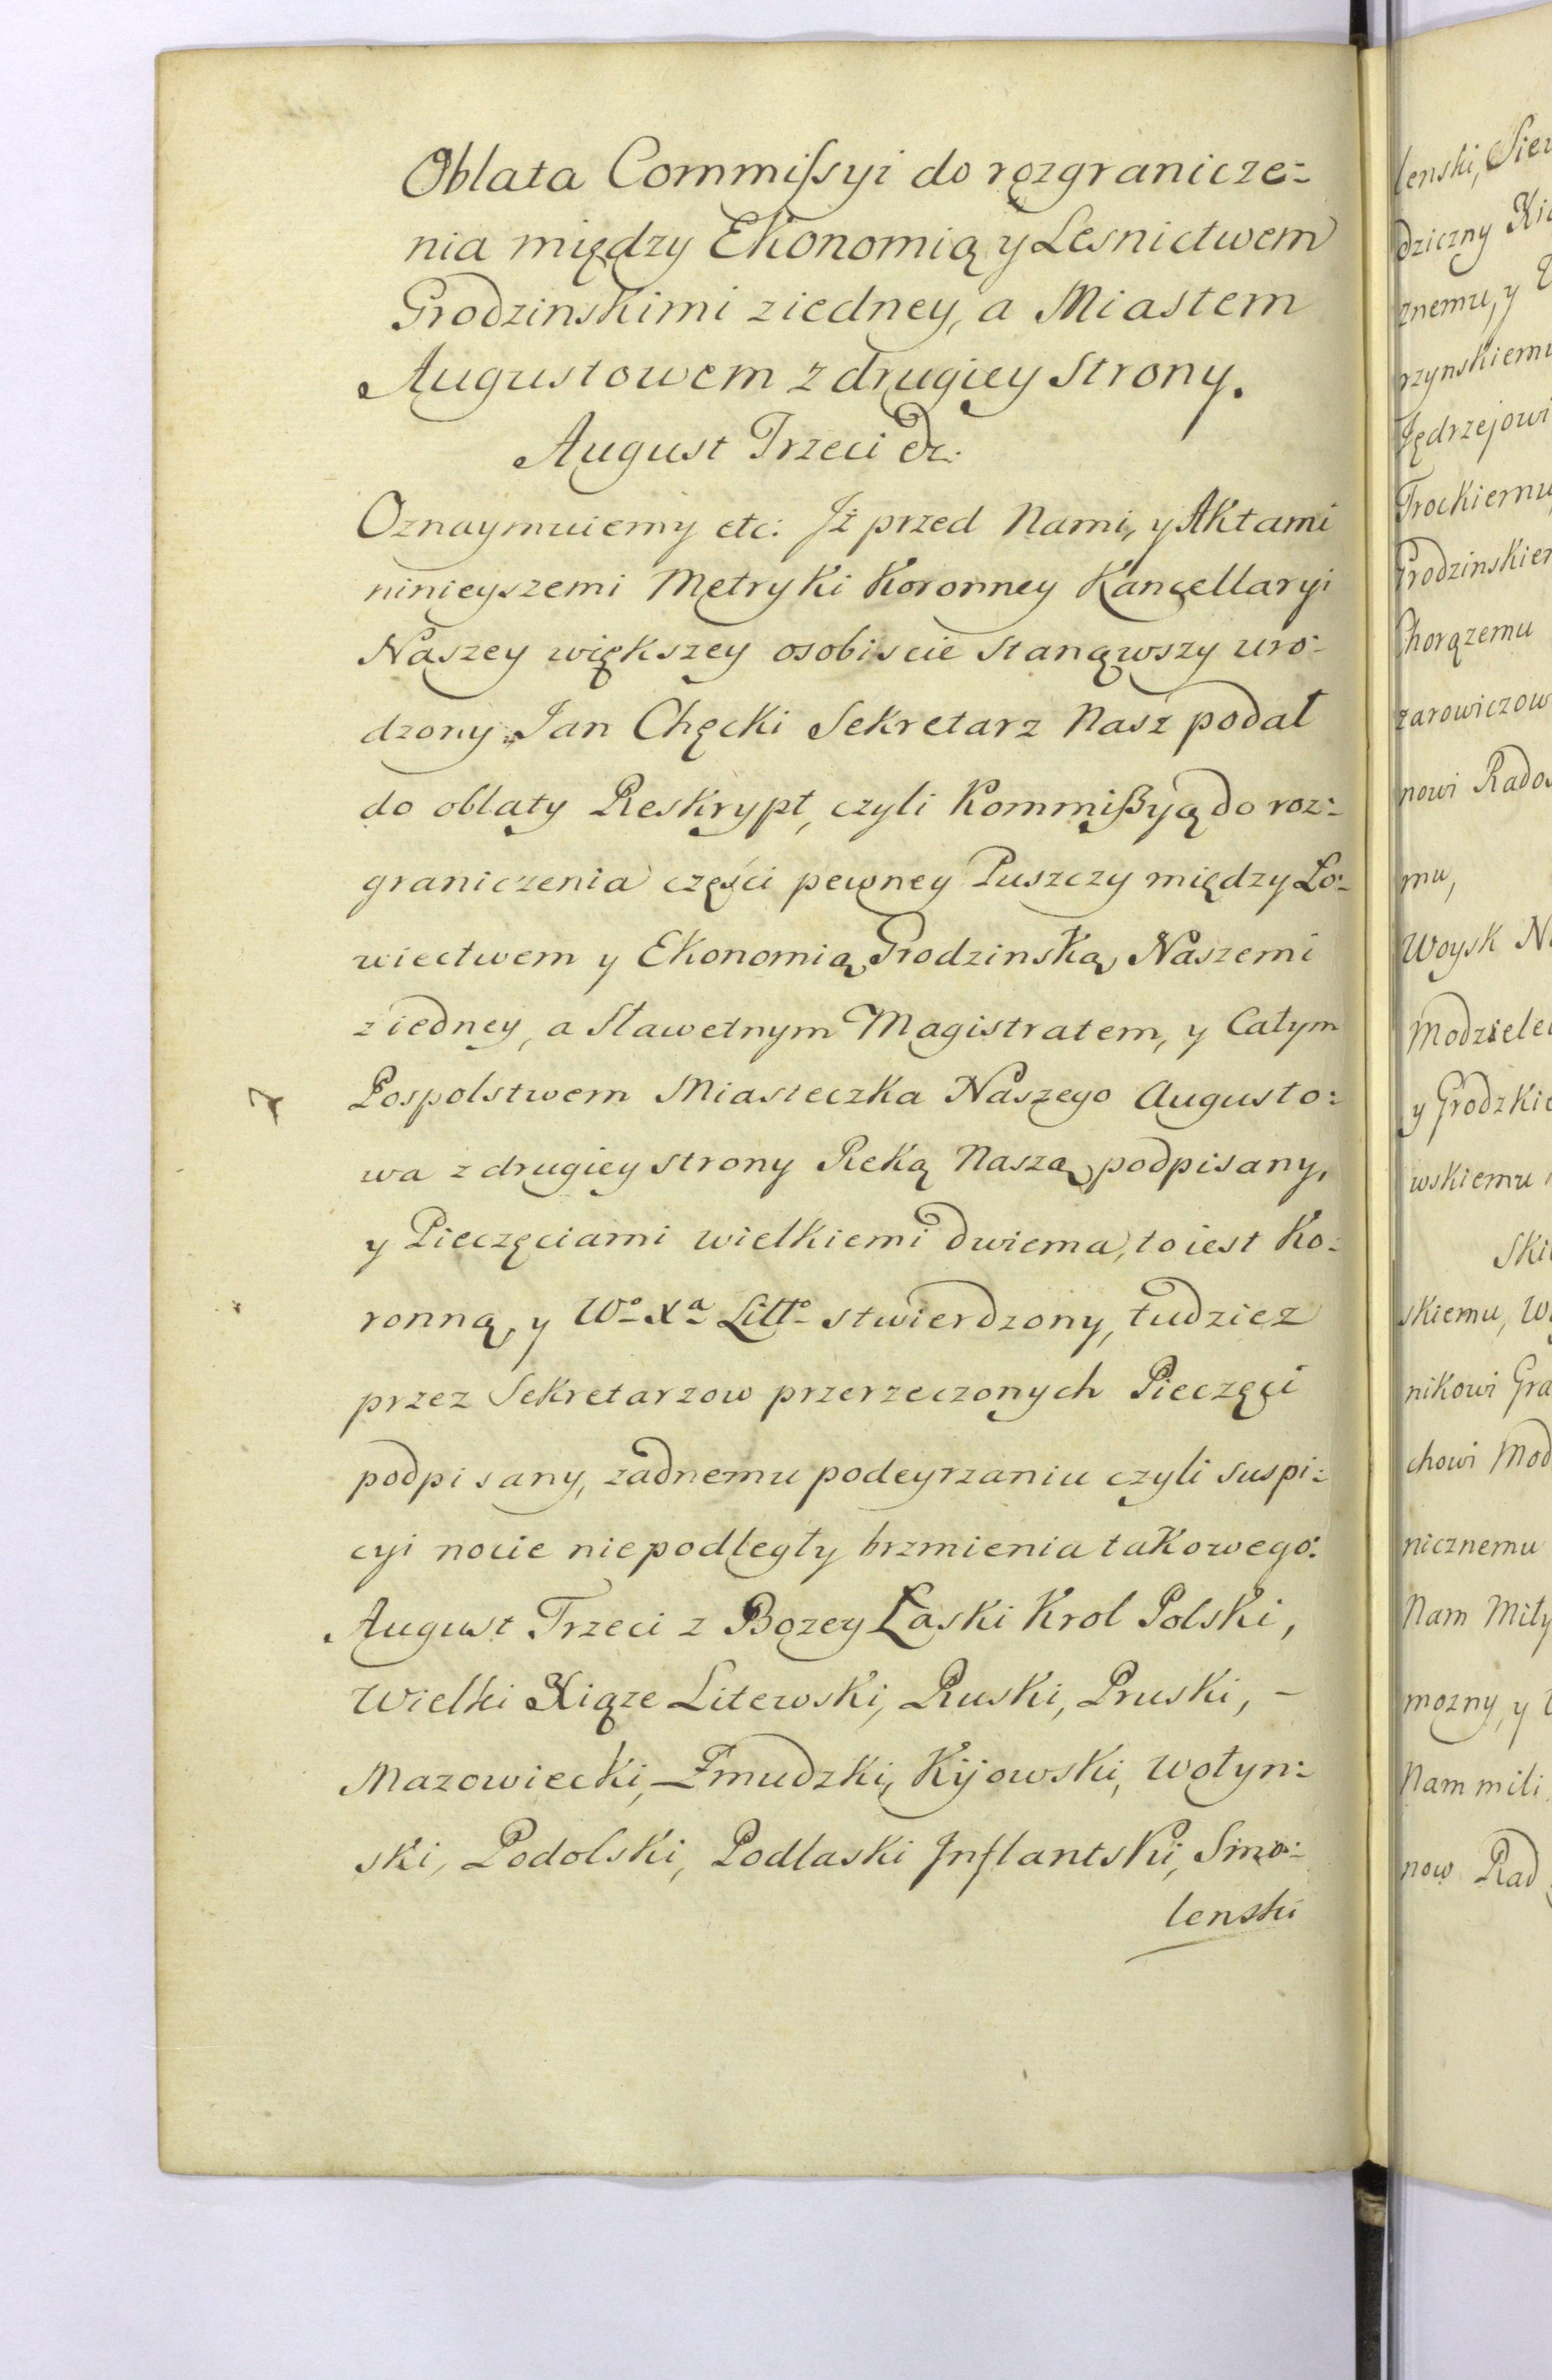 Oblata Commißyi do rozgranicze=
nia między Ekonomią y Lesnictwem
Grodzinskimi ziedney, a Miastem
Augustowem z drugiey Strony.
August Trzeci &c.
Oznaymuiemy etc: Jż przed Nami, y Aktami
ninieyszemi Metryki Koronney Kancellaryi
Naszey większey osobiscie Stanąwszy uro=
dzony Jan Chęcki Sekretarz Nasz podał
do oblaty Reskrypt, czyli Kommißyą do roz=
graniczenia części pewney Puszczy między Ło=
wiectwem y Ekonomią Grodzinską Naszemi
z iedney, a Sławetnym Magistratem, y Całym
Pospolstwem Miasteczka Naszego Augusto=
wa z drugiey strony Ręką Naszą podpisany,
y Pieczęciami wielkiemi dwiema, to iest Ko=
ronną, y Wo Xa Litto stwierdzony, tudziez
przez Sekretarzow przerzeczonych Pieczęci
podpisany, zadnemu podeyrzaniu czyli suspi=
cyi nocie niepodległy brzmienia takowego:
August Trzeci z Bozey Łaski Krol Polski,
Wielki Xiąze Litewski, Ruski, Pruski, –
Mazowiecki, Zmudzki, Kijowski, Wołyn=
ski, Podolski, Podlaski Jnflantski, Smo=
lenski
lenski, Siew
dziczny Xią
znemu, y
rzynskiemu
Jędrzejowi
Trockiemu,
Grodzinskiem
Chorązemu
zarowiczow
nowi Rados
mu,
Woysk Na
Modzelew
y Grodzkie
wskiemu
Ski
skiemu, W
nikowi Gra
chowi Mod
nicznemu
Nam Miły
mozny, y
Nam mili
now Rad